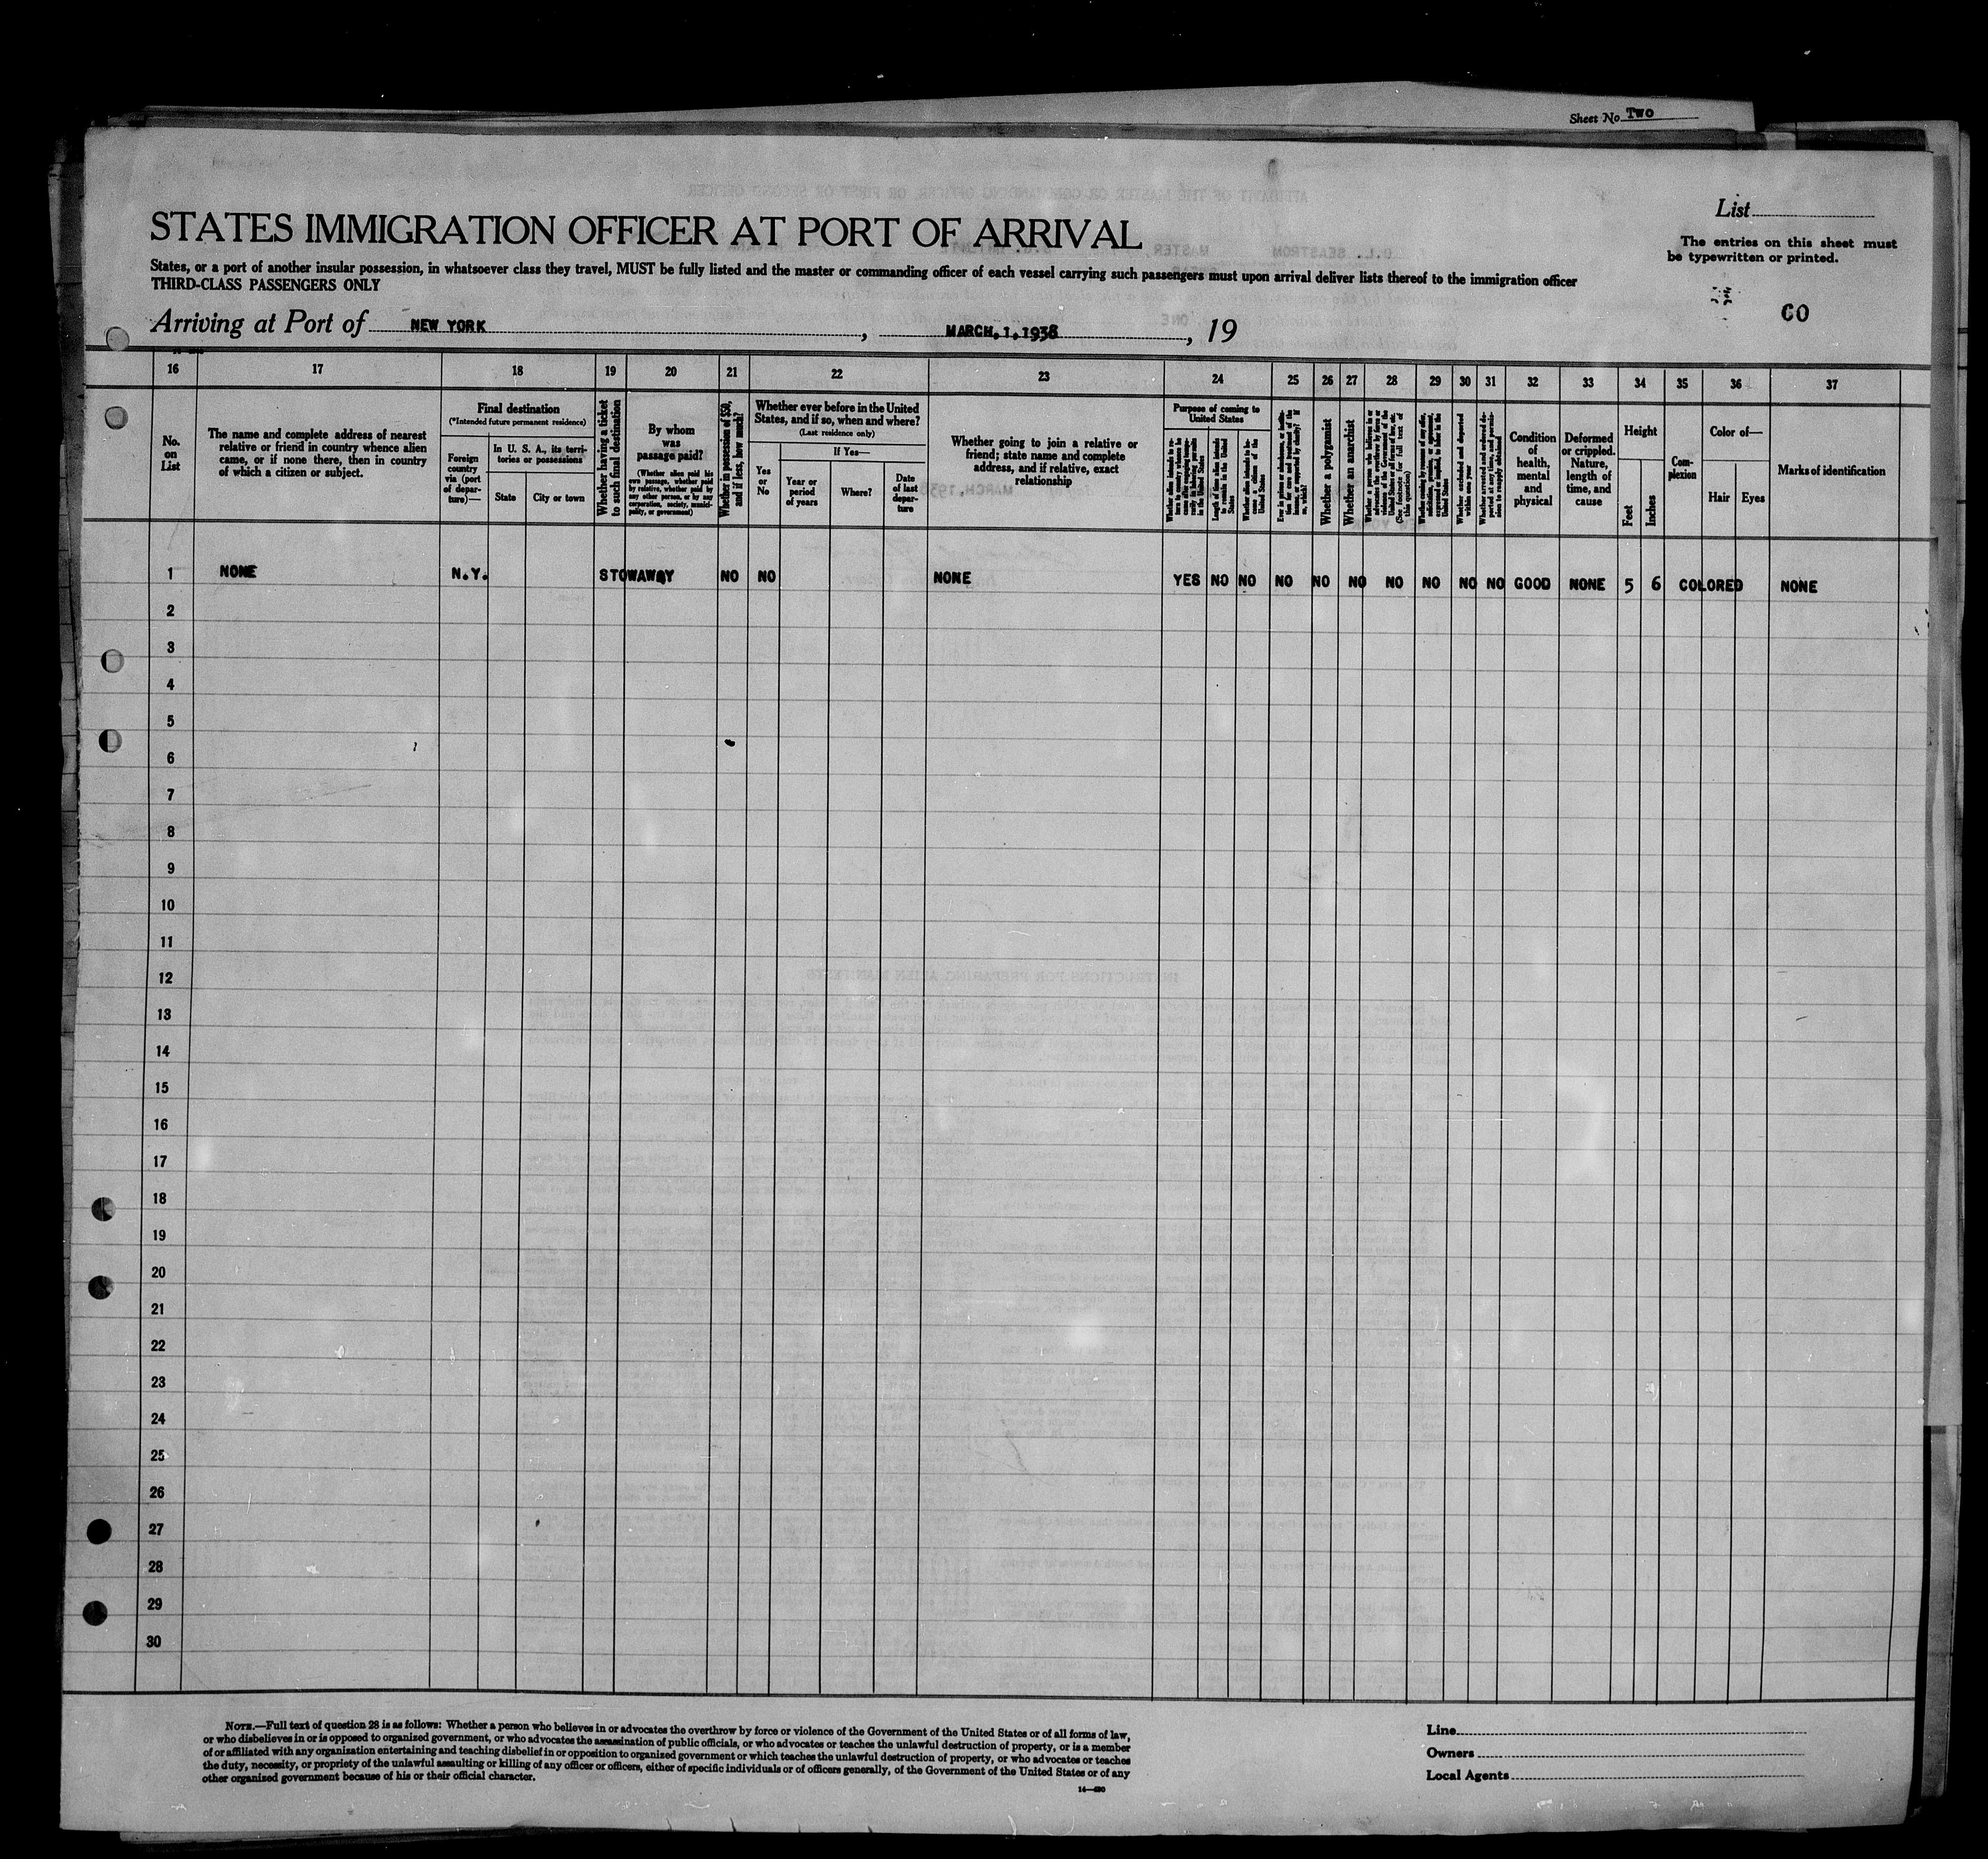 Sheet No. Two
List
STATES IMMIGRATION OFFICER AT PORT OF ARRIVAL
The entries on this sheet must
be typewritten or printed.
States, or a port of another insular possession, in whatsoever class they travel, MUST be fully listed and the master or commanding officer of each vessel carrying such passengers must upon arrival deliver lists thereof to the immigration officer
THIRD-CLASS PASSENGERS ONLY
CO
Arriving at Port of NEW YORK, MARCH, 1. 1938, 19
16 17 18 19 20 21 22 23 24 25 26 27 28 29 30 31 32 33 34 35 36 37
No.
on
List
The name and complete address of nearest
relative or friend in country whence alien
came, or if none there, then in country
of which a citizen or subject.
Final destination
(*Intended future permanent residence)
Foreign
country
via (port
of depar-
ture)—
In U. S. A., its terri-
tories or possessions
State
City or town
Whether having a ticket
to such final destination
By whom
was
passage paid?
(Whether alien paid his
own passage, whether paid
by relative, whether paid by
any other person, or by any
corporation, society, munici-
pality, or government)
Whether in possession of $50,
and if less, how much?
Whether ever before in the United
States, and if so, when and where?
(Last residence only)
Yes
or
No
If Yes—
Year or
period
of years
Where?
Date
of last
depar-
ture
Whether going to join a relative or
friend; state name and complete
address, and if relative, exact
relationship
Purpose of coming to
United States
Length of time alien intends
to remain in the United
States
Whether alien intends to be-
come a citizen of the
United States
Whether a polygamist
Whether an anarchist
(See footnote for full text of
this question)
Condition
of
health,
mental
and
physical
Deformed
or crippled.
Nature,
length of
time, and
cause
Height
Feet
Inches
Com-
plexion
Color of—
Hair
Eyes
Marks of identification
1 NONE N.Y. STOWAWAY NO NO NONE YES NO NO NO NO NO NO NO NO NO GOOD NONE 5 6 COLORED NONE
2
3
4
5
6
7
8
9
10
11
12
13
14
15
16
17
18
19
20
21
22
23
24
25
26
27
28
29
30
NOTE.—Full text of question 28 is as follows: Whether a person who believes in or advocates the overthrow by force or violence of the Government of the United States or of all forms of law,
or who disbelieves in or is opposed to organized government, or who advocates the assassination of public officials, or who advocates or teaches the unlawful destruction of property, or is a member
of or affiliated with any organization entertaining and teaching disbelief in or opposition to organized government or which teaches the unlawful destruction of property, or who advocates or teaches
the duty, necessity, or propriety of the unlawful assaulting or killing of any officer or officers, either of specific individuals or of officers generally, of the Government of the United States or of any
other organized government because of his or their official character.
Line
Owners
Local Agents